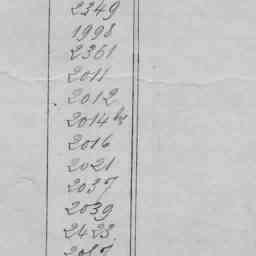 2349
1998
2361
2011
2012
2014 bis
2016
2021
2037
2039
2423